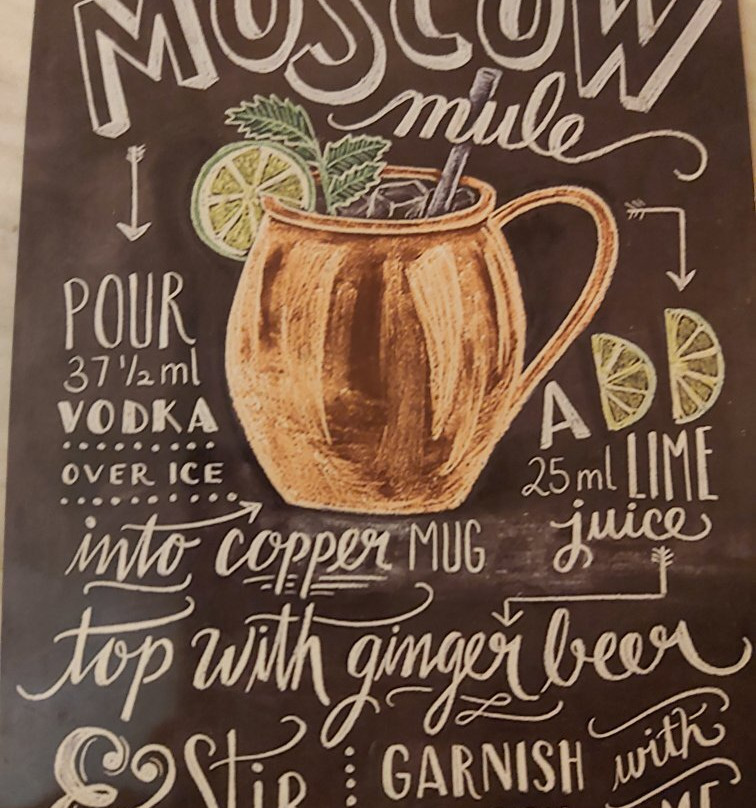 MOSCOW
mule
POUR
37 1/2 ml
VODKA
OVER ICE
into copper MUG
ADD
25 ml LIME
juice
top with ginger beer
& Stir
GARNISH with